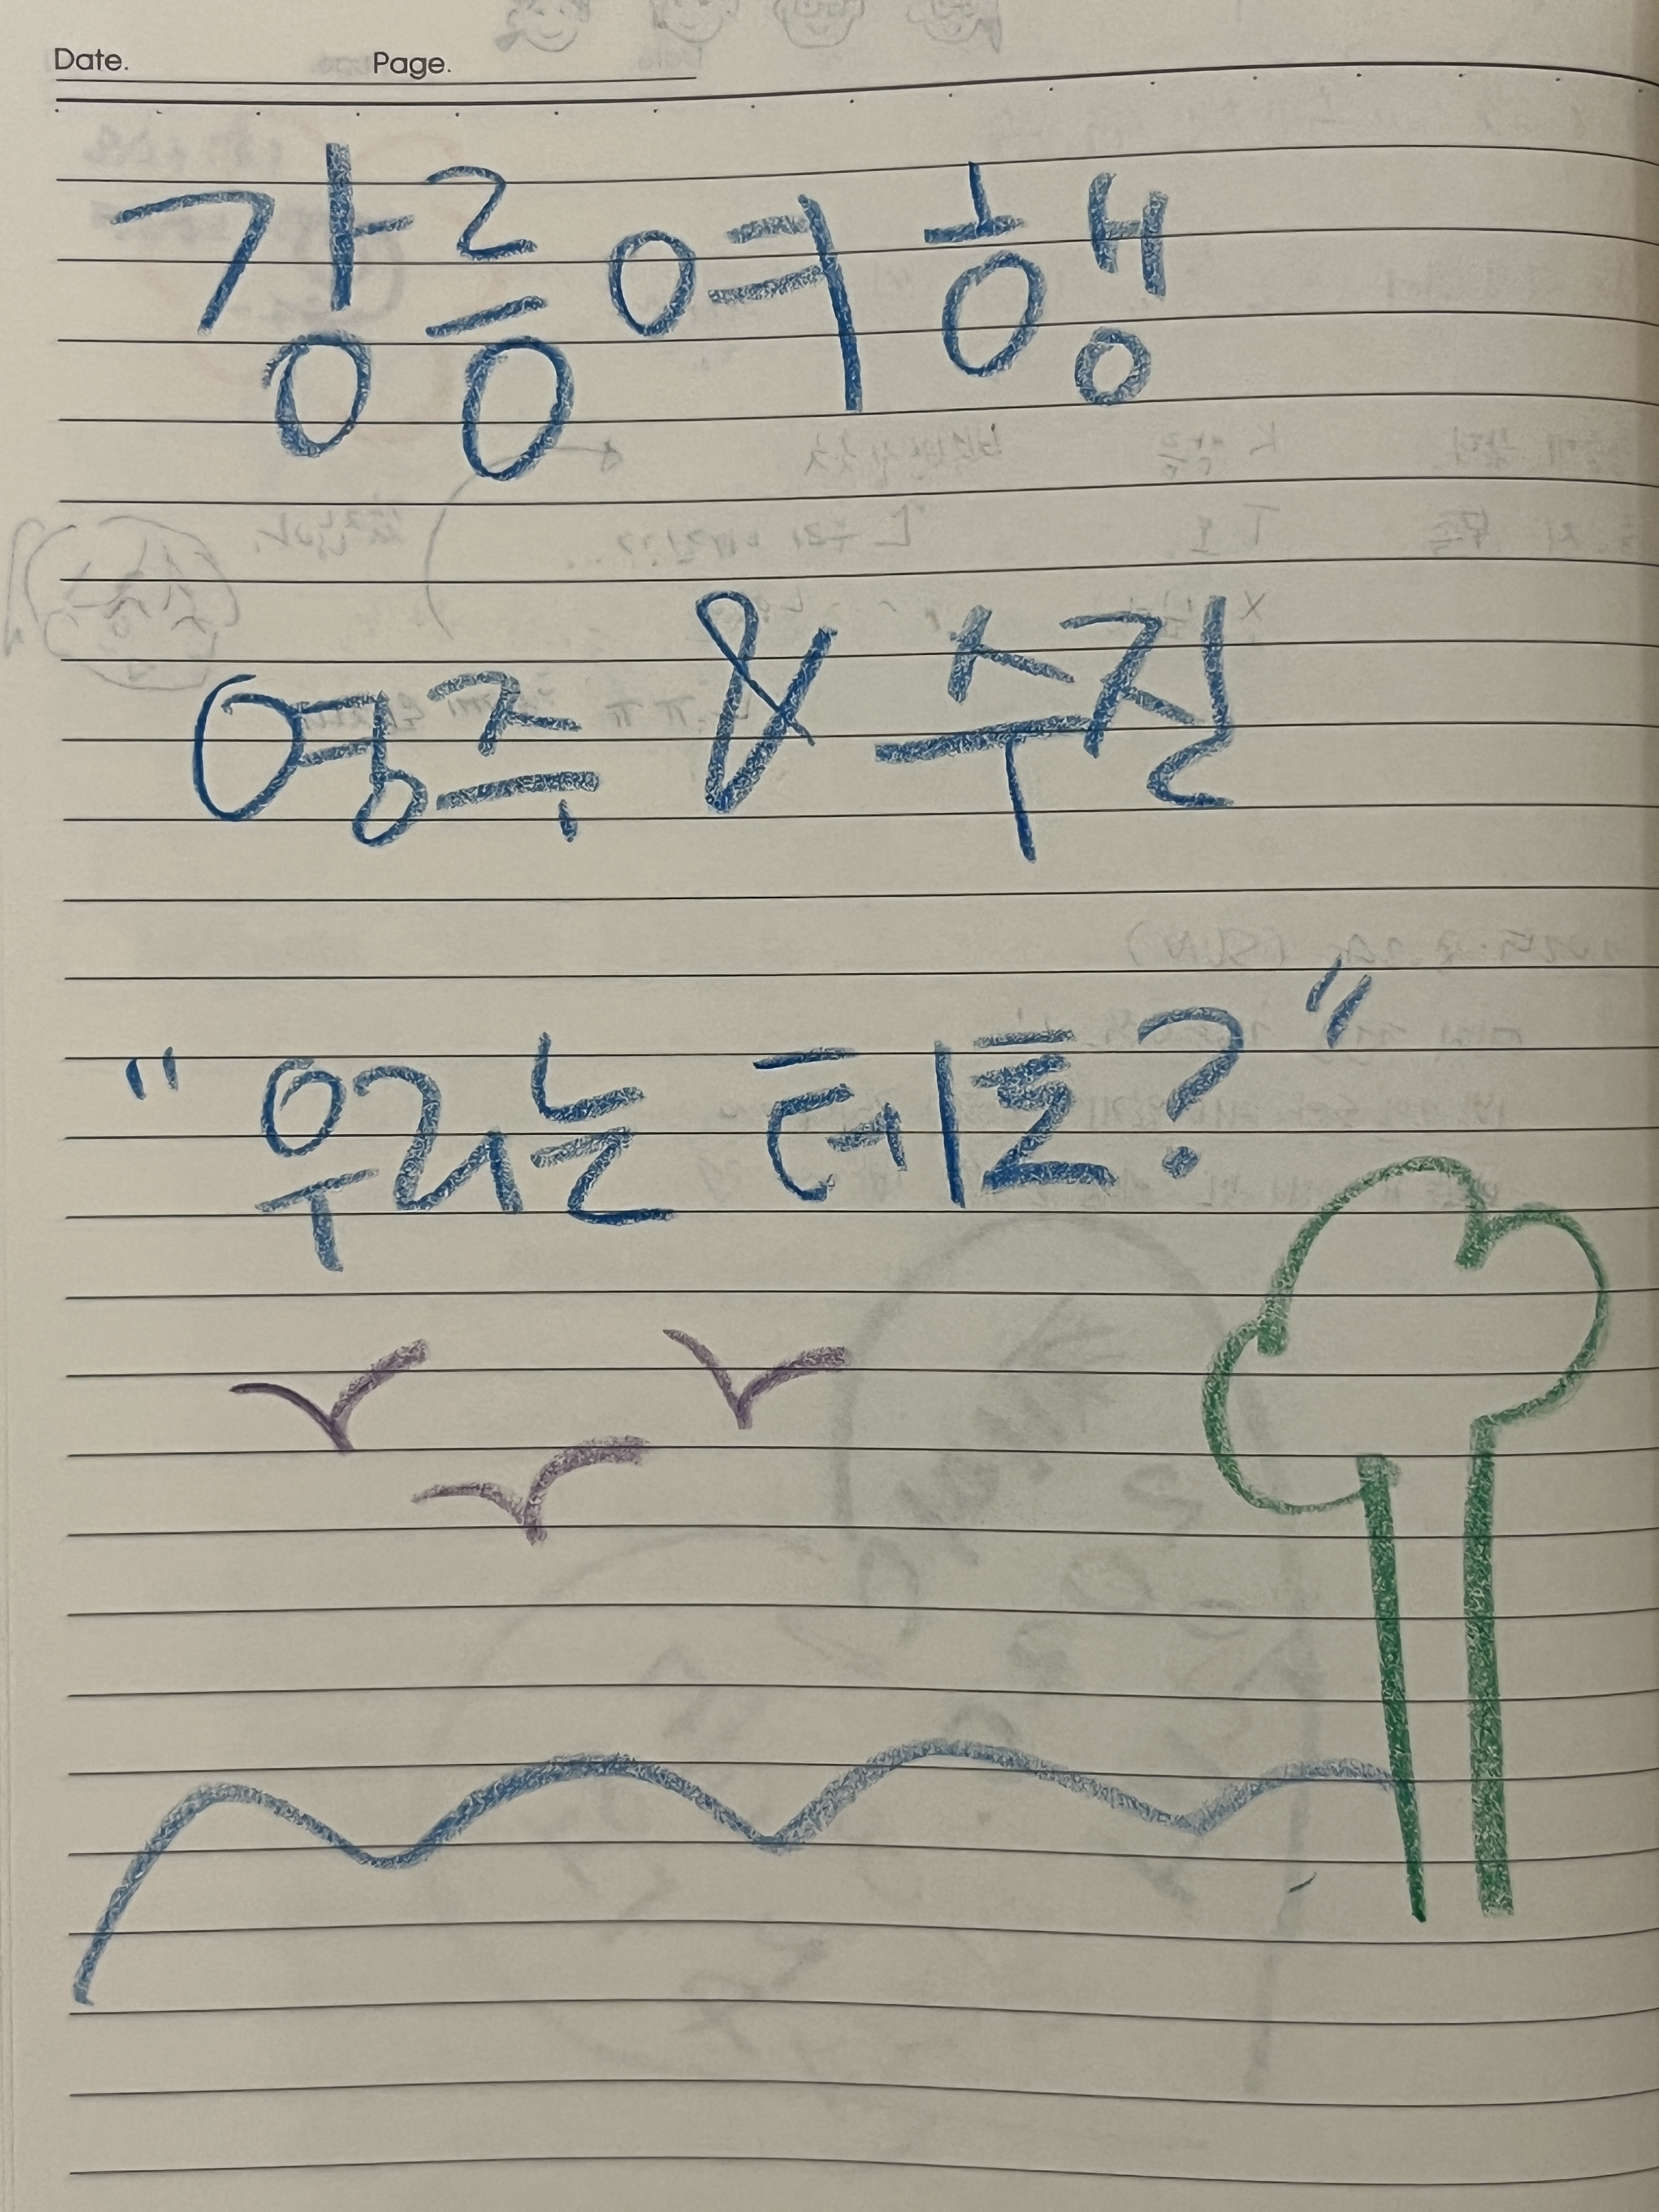 Date. Page.
강릉여행
영주 & 수진
"우리는 테토?"